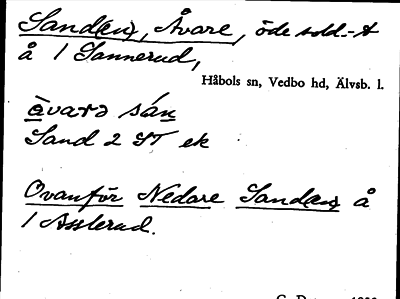 Sand(en), Åvare, öde sold.-t
å 1 Sannerud,
Håbols sn, Vedbo hd, Älvsb. l.
åvarə sán
Sand 2 ST ek
Ovanför Nedare Sand(en) å
1 Asslerud.